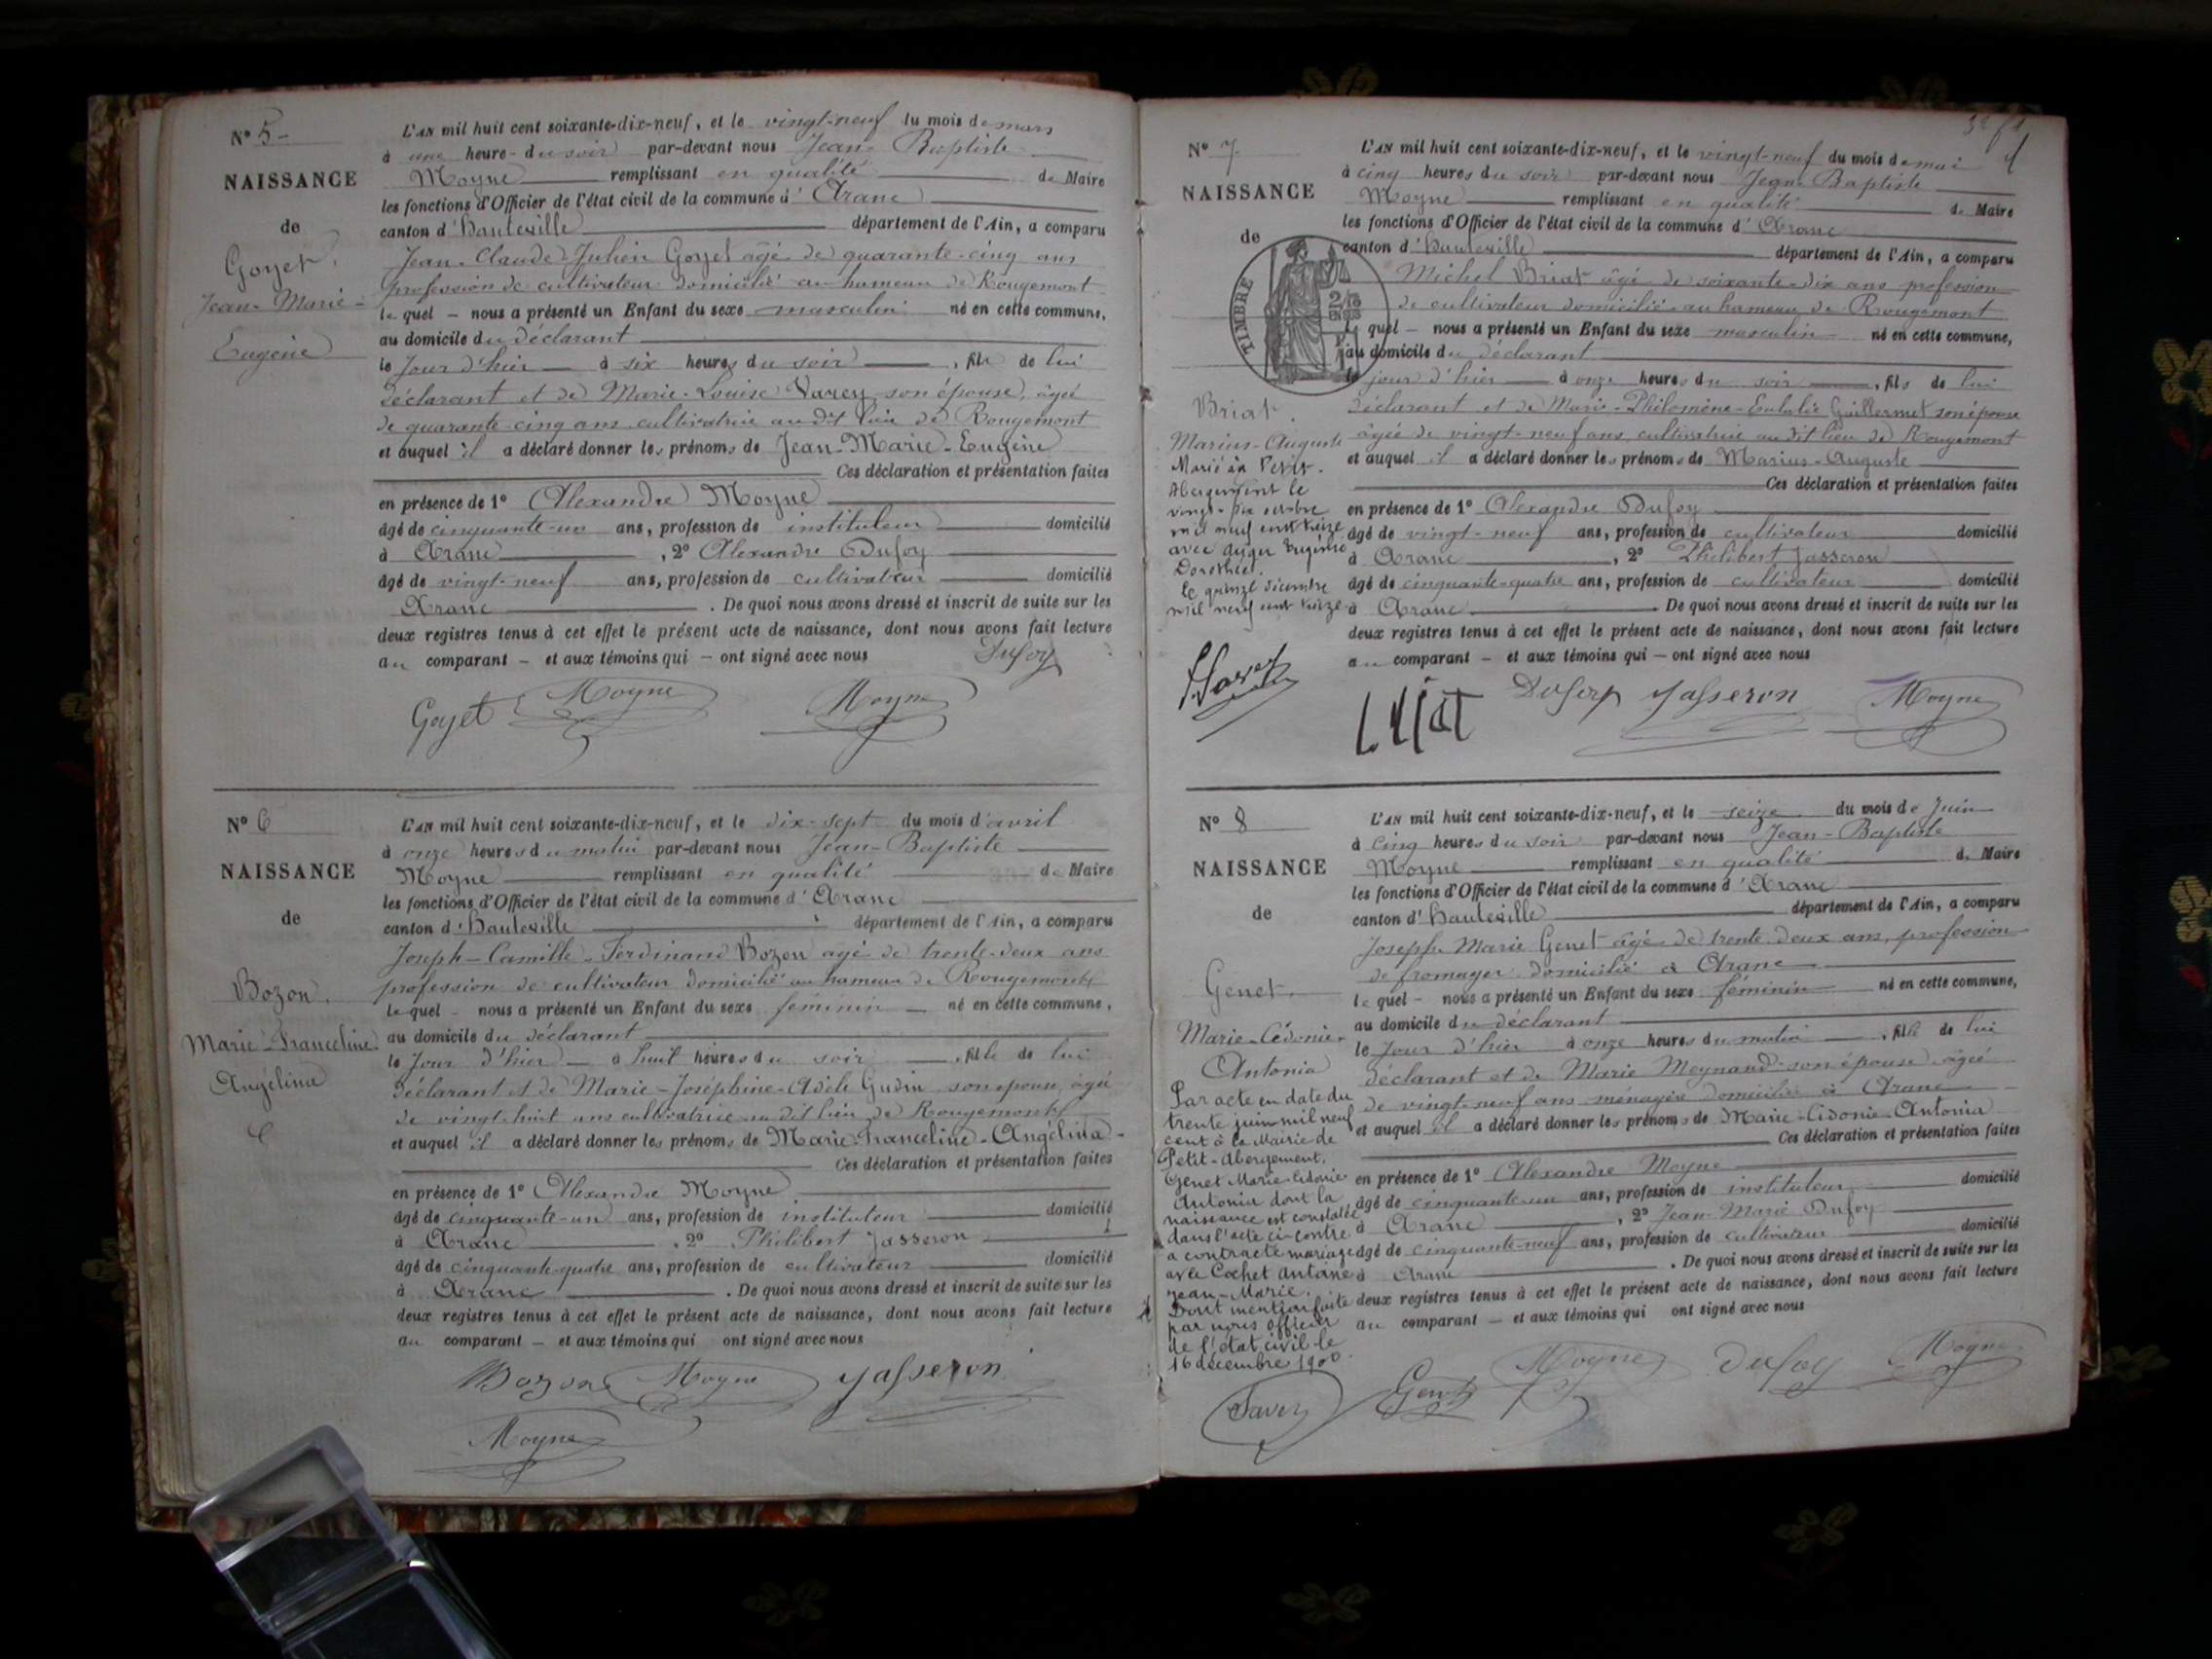 N° 5
NAISSANCE
de
Goyet
Jean-Marie-
Eugène
L'AN mil huit cent soixante-dix-neuf, et le vingt-neuf du mois de mars
à une heure du soir par-devant nous Jean-Baptiste
Moyne remplissant en qualité de Maire
les fonctions d'Officier de l'état civil de la commune d' Aranc
canton d' Hauteville département de l'Ain, a comparu
Jean-Claude-Julien Goyet âgé de quarante-cinq ans
profession de cultivateur domicilié au hameau de Rougemont
lequel – nous a présenté un Enfant du sexe masculin né en cette commune,
au domicile du déclarant
le jour d'hier à six heures du soir , fils de lui
déclarant et de Marie-Louise Varey son épouse, âgée
de quarante-cinq ans cultivatrice au dit lieu de Rougemont
et auquel il a déclaré donner les prénoms de Jean-Marie-Eugène
Ces déclaration et présentation faites
en présence de 1° Alexandre Moyne
âgé de cinquante-un ans, profession de instituteur domicilié
à Aranc , 2° Alexandre Dufoy
âgé de vingt-neuf ans, profession de cultivateur domicilié
Aranc . De quoi nous avons dressé et inscrit de suite sur les
deux registres tenus à cet effet le présent acte de naissance, dont nous avons fait lecture
au comparant – et aux témoins qui – ont signé avec nous Dufoy
Goyet Moyne Moyne
N° 6
NAISSANCE
de
Bozon
Marie-Franceline
Angélina
L'AN mil huit cent soixante-dix-neuf, et le dix-sept du mois d'avril
à onze heures du matin par-devant nous Jean-Baptiste
Moyne remplissant en qualité de Maire
les fonctions d'Officier de l'état civil de la commune d' Aranc
canton d' Hauteville département de l'Ain, a comparu
Joseph-Camille-Ferdinand Bozon âgé de trente-deux ans
profession de cultivateur domicilié au hameau de Rougemont
lequel – nous a présenté un Enfant du sexe féminin – né en cette commune,
au domicile du déclarant
le jour d'hier – à huit heures du soir , fille de lui
déclarant et de Marie-Joséphine-Adèle Gudin son épouse, âgée
de vingt-huit ans cultivatrice au dit lieu de Rougemont
et auquel il a déclaré donner les prénoms de Marie-Franceline-Angélina-
Ces déclaration et présentation faites
en présence de 1° Alexandre Moyne
âgé de cinquante-un ans, profession de instituteur domicilié
à Aranc , 2° Philibert Jasseron
âgé de cinquante-quatre ans, profession de cultivateur domicilié
à Aranc . De quoi nous avons dressé et inscrit de suite sur les
deux registres tenus à cet effet le présent acte de naissance, dont nous avons fait lecture
au comparant – et aux témoins qui ont signé avec nous
Bozon Moyne Jasseron
Moyne
N° 7
NAISSANCE
de
TIMBRE
Briat
Marius-Auguste
Marié à Petit-
Abergement le
vingt-six octobre
mil neuf cent treize
avec Auger Eugénie
Dorothée.
Le quinze décembre
mil neuf cent treize
L'AN mil huit cent soixante-dix-neuf, et le vingt-neuf du mois de mai
à cinq heures du soir par-devant nous Jean-Baptiste
Moyne remplissant en qualité de Maire
les fonctions d'Officier de l'état civil de la commune d' Aranc
canton d' Hauteville département de l'Ain, a comparu
Michel Briat âgé de soixante-dix ans profession
de cultivateur domicilié au hameau de Rougemont
lequel – nous a présenté un Enfant du sexe masculin né en cette commune,
au domicile du déclarant
le jour d'hier à onze heures du soir , fils de lui
déclarant et de Marie-Philomène-Eulalie Guillermet son épouse
âgée de vingt-neuf ans, cultivatrice au dit lieu de Rougemont
et auquel il a déclaré donner les prénoms de Marius-Auguste
Ces déclaration et présentation faites
en présence de 1° Alexandre Dufoy
âgé de vingt-neuf ans, profession de cultivateur domicilié
à Aranc , 2° Philibert Jasseron
âgé de cinquante-quatre ans, profession de cultivateur domicilié
à Aranc . De quoi nous avons dressé et inscrit de suite sur les
deux registres tenus à cet effet le présent acte de naissance, dont nous avons fait lecture
au comparant – et aux témoins qui – ont signé avec nous
Dufoy Jasseron Moyne
N° 8
NAISSANCE
de
Genet
Marie-Cidonie-
Antonia
Par acte en date du
trente juin mil neuf
cent à la Mairie de
Petit-Abergement,
Genet Marie-Cidonie
Antonia dont la
naissance est constatée
dans l'acte ci-contre
a contracté mariage
avec Cochet Antoine
Jean-Marie.
Dont mention faite
par nous officier
de l'état civil le
16 décembre 1900.
Savey
L'AN mil huit cent soixante-dix-neuf, et le seize du mois de Juin
à cinq heures du soir par-devant nous Jean-Baptiste
Moyne remplissant en qualité de Maire
les fonctions d'Officier de l'état civil de la commune d' Aranc
canton d' Hauteville département de l'Ain, a comparu
Joseph-Marie Genet âgé de trente-deux ans, profession
de fromager domicilié à Aranc
lequel – nous a présenté un Enfant du sexe féminin né en cette commune,
au domicile du déclarant
le jour d'hier à onze heures du matin , fille de lui
déclarant et de Marie Meynand son épouse âgée
de vingt-neuf ans ménagère domiciliée à Aranc
et auquel il a déclaré donner les prénoms de Marie-Cidonie-Antonia
Ces déclaration et présentation faites
en présence de 1° Alexandre Moyne
âgé de cinquante-un ans, profession de instituteur domicilié
à Aranc , 2° Jean-Marie Dufoy
âgé de cinquante-neuf ans, profession de cultivateur domicilié
à Aranc . De quoi nous avons dressé et inscrit de suite sur les
deux registres tenus à cet effet le présent acte de naissance, dont nous avons fait lecture
au comparant – et aux témoins qui ont signé avec nous
Genet Moyne Dufoy Moyne